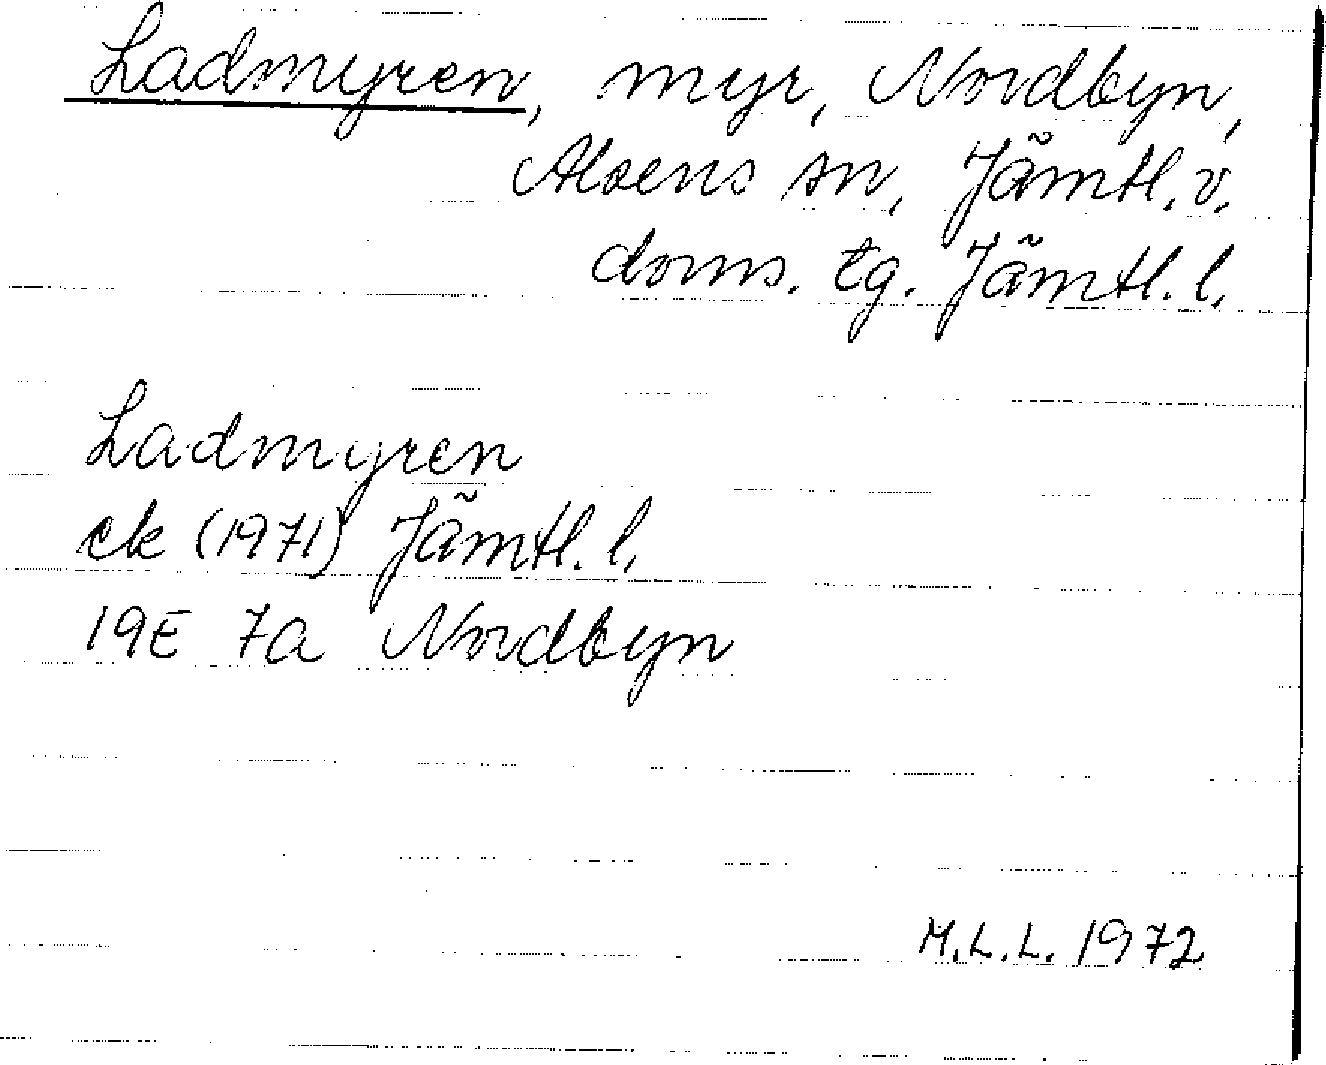 Ladmyren, myr, Nordbyn,
Alsens sn, Jämtl. v.
doms. tg. Jämtl. l.
Ladmyren
ek (1971) Jämtl. l.
19E 7a Nordbyn
M.L.L. 1972